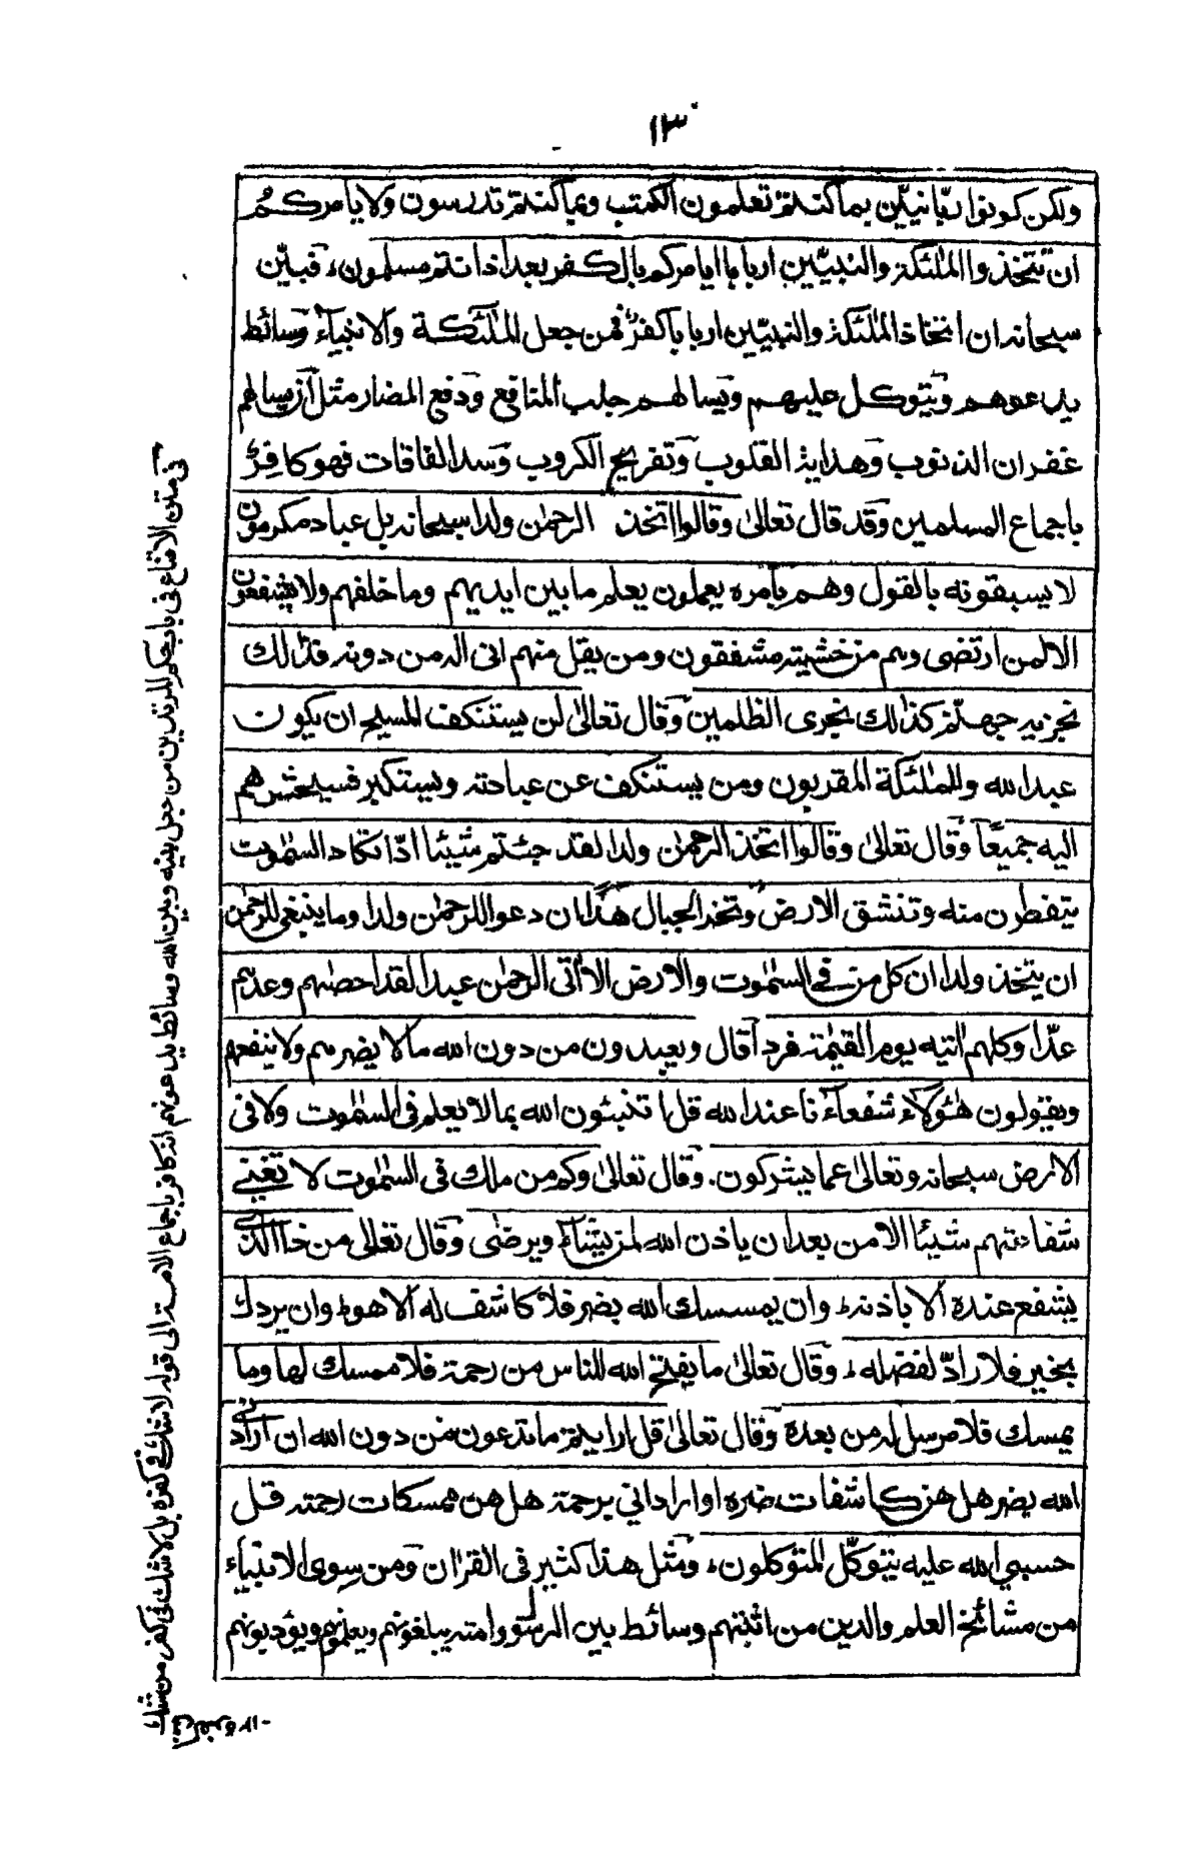 ١٣
ولكن كونوا ربّانيّين بما كنتم تعلمون الكتب وبما كنتم تدرسون ولا يأمركم
ان تتخذوا الملئكة والنبيّين اربابا ايامركم بالكفر بعد اذ انتم مسلمون، فبيّن
سبحانه ان اتخاذ الملئكة والنبيّين اربابا كفرٌ فمن جعل الملئكة والانبياء وسائط
يدعوهم ويتوكل عليهم ويسالهم جلب المنافع ودفع المضار مثل ان يسالهم
غفران الذنوب وهداية القلوب وتفريج الكروب وسد الفاقات فهو كافرٌ
باجماع المسلمين وقد قال تعالى وقالوا اتخذ الرحمٰن ولدا سبحانه بل عباد مكرمون
لا يسبقونه بالقول وهم بامره يعملون يعلم ما بين ايديهم وما خلفهم ولا يشفعون
الا لمن ارتضى وهم من خشيته مشفقون ومن يقل منهم انى اله من دونه فذالك
نجزيه جهنّم كذالك نجزى الظلمين وقال تعالىٰ لن يستنكف المسيح ان يكون
عبدا لله ولا الملئكة المقربون ومن يستنكف عن عبادته ويستكبر فسيحشرهم
اليه جميعًا وقال تعالىٰ وقالوا اتخذ الرحمٰن ولدا لقد جئتم شيئا ادّا تكاد السمٰوت
يتفطرن منه وتنشق الارض وتخر الجبال هدًّا ان دعوا للرحمٰن ولدا وما ينبغى للرحمٰن
ان يتخذ ولدا ان كل من في السمٰوت والارض الا اٰتى الرحمٰن عبدا لقد احصٰهم وعدهم
عدّا وكلهم اٰتيه يوم القيٰمة فردا وقال ويعبدون من دون الله ما لا يضرهم ولا ينفعهم
ويقولون هٰؤلاء شفعاءنا عند الله قل اتنبئون الله بما لا يعلم فى السمٰوت ولا فى
الارض سبحانه وتعالىٰ عما يشركون. وقال تعالىٰ وكم من ملك فى السمٰوت لا تغنى
شفاعتهم شيئا الا من بعد ان ياذن الله لمن يشاء ويرضى وقال تعالى من ذا الذى
يشفع عنده الا باذنه، وان يمسسك الله بضر فلا كاشف له الا هو وان يردك
بخير فلا رادّ لفضله، وقال تعالىٰ ما يفتح الله للناس من رحمة فلا ممسك لها وما
يمسك فلا مرسل له من بعده وقال تعالىٰ قل ارايتم ما تدعون من دون الله ان ارادنى
الله بضر هل هن كاشفات ضره او ارادني برحمة هل هن ممسكات رحمته قل
حسبي الله عليه يتوكّل المتوكلون، ومثل هذا كثير فى القراٰن ومن سوى الانبياء
من مشائخ العلم والدين من اثبتهم وسائط بين الرسول وامته يبلغونهم ويعلمونهم ويؤدبونهم
فى متن الاقناع فى باب حكم المرتد ين من جعل بينه وبين الله وسائط يدعونهم انه كافر باجماع الامة الى قوله لا شك فى كفره بل لا شك فى كفر من شك